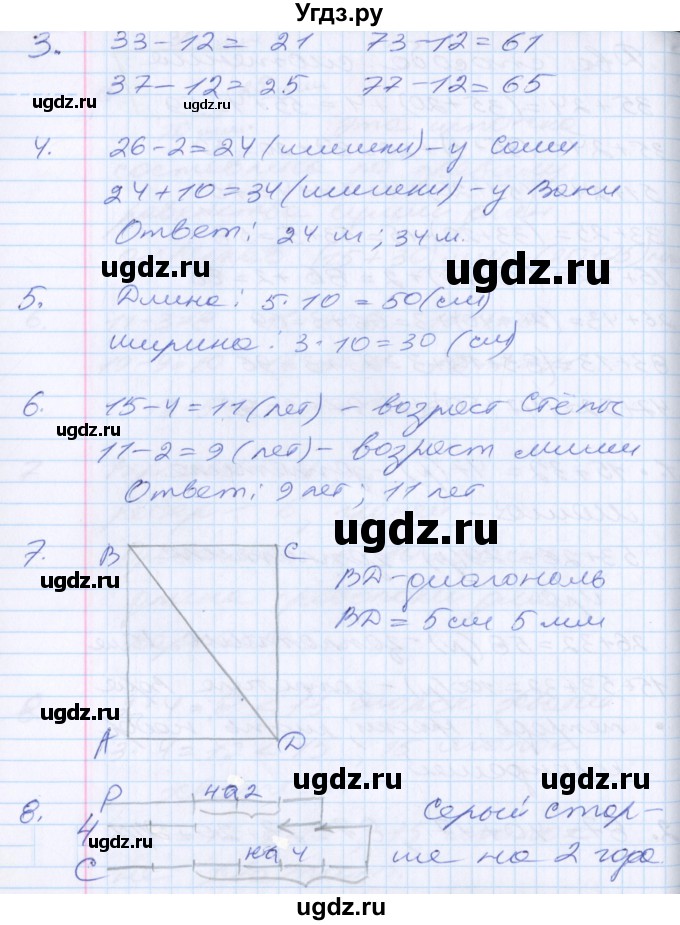 Угдз.ру
3. 33-12= 21 73-12=61
37-12=25 77-12=65
ugdz.ru ugdz.ru
4. 26-2=24 (шишки)-у Саши
24+10=34 (шишки)-у Вани
Ответ: 24 ш; 34 ш.
ugdz.ru ugdz.ru
5. Длина: 5·10=50(см)
ширина: 3·10=30 (см)
6. 15-4=11 (лет) - возраст Стёпы
ugdz.ru
11-2=9 (лет)- возраст миши
Ответ: 9 лет; 11 лет
ugdz.ru
7. В С
ugdz.ru
ВД-диагональ
ВД= 5см 5мм
ugdz.ru
А Д
ugdz.ru ugdz.ru
8. Р на 2 Серый стар-
Ч
ugdz.ru
С на 4 ше на 2 года
ugdz.ru